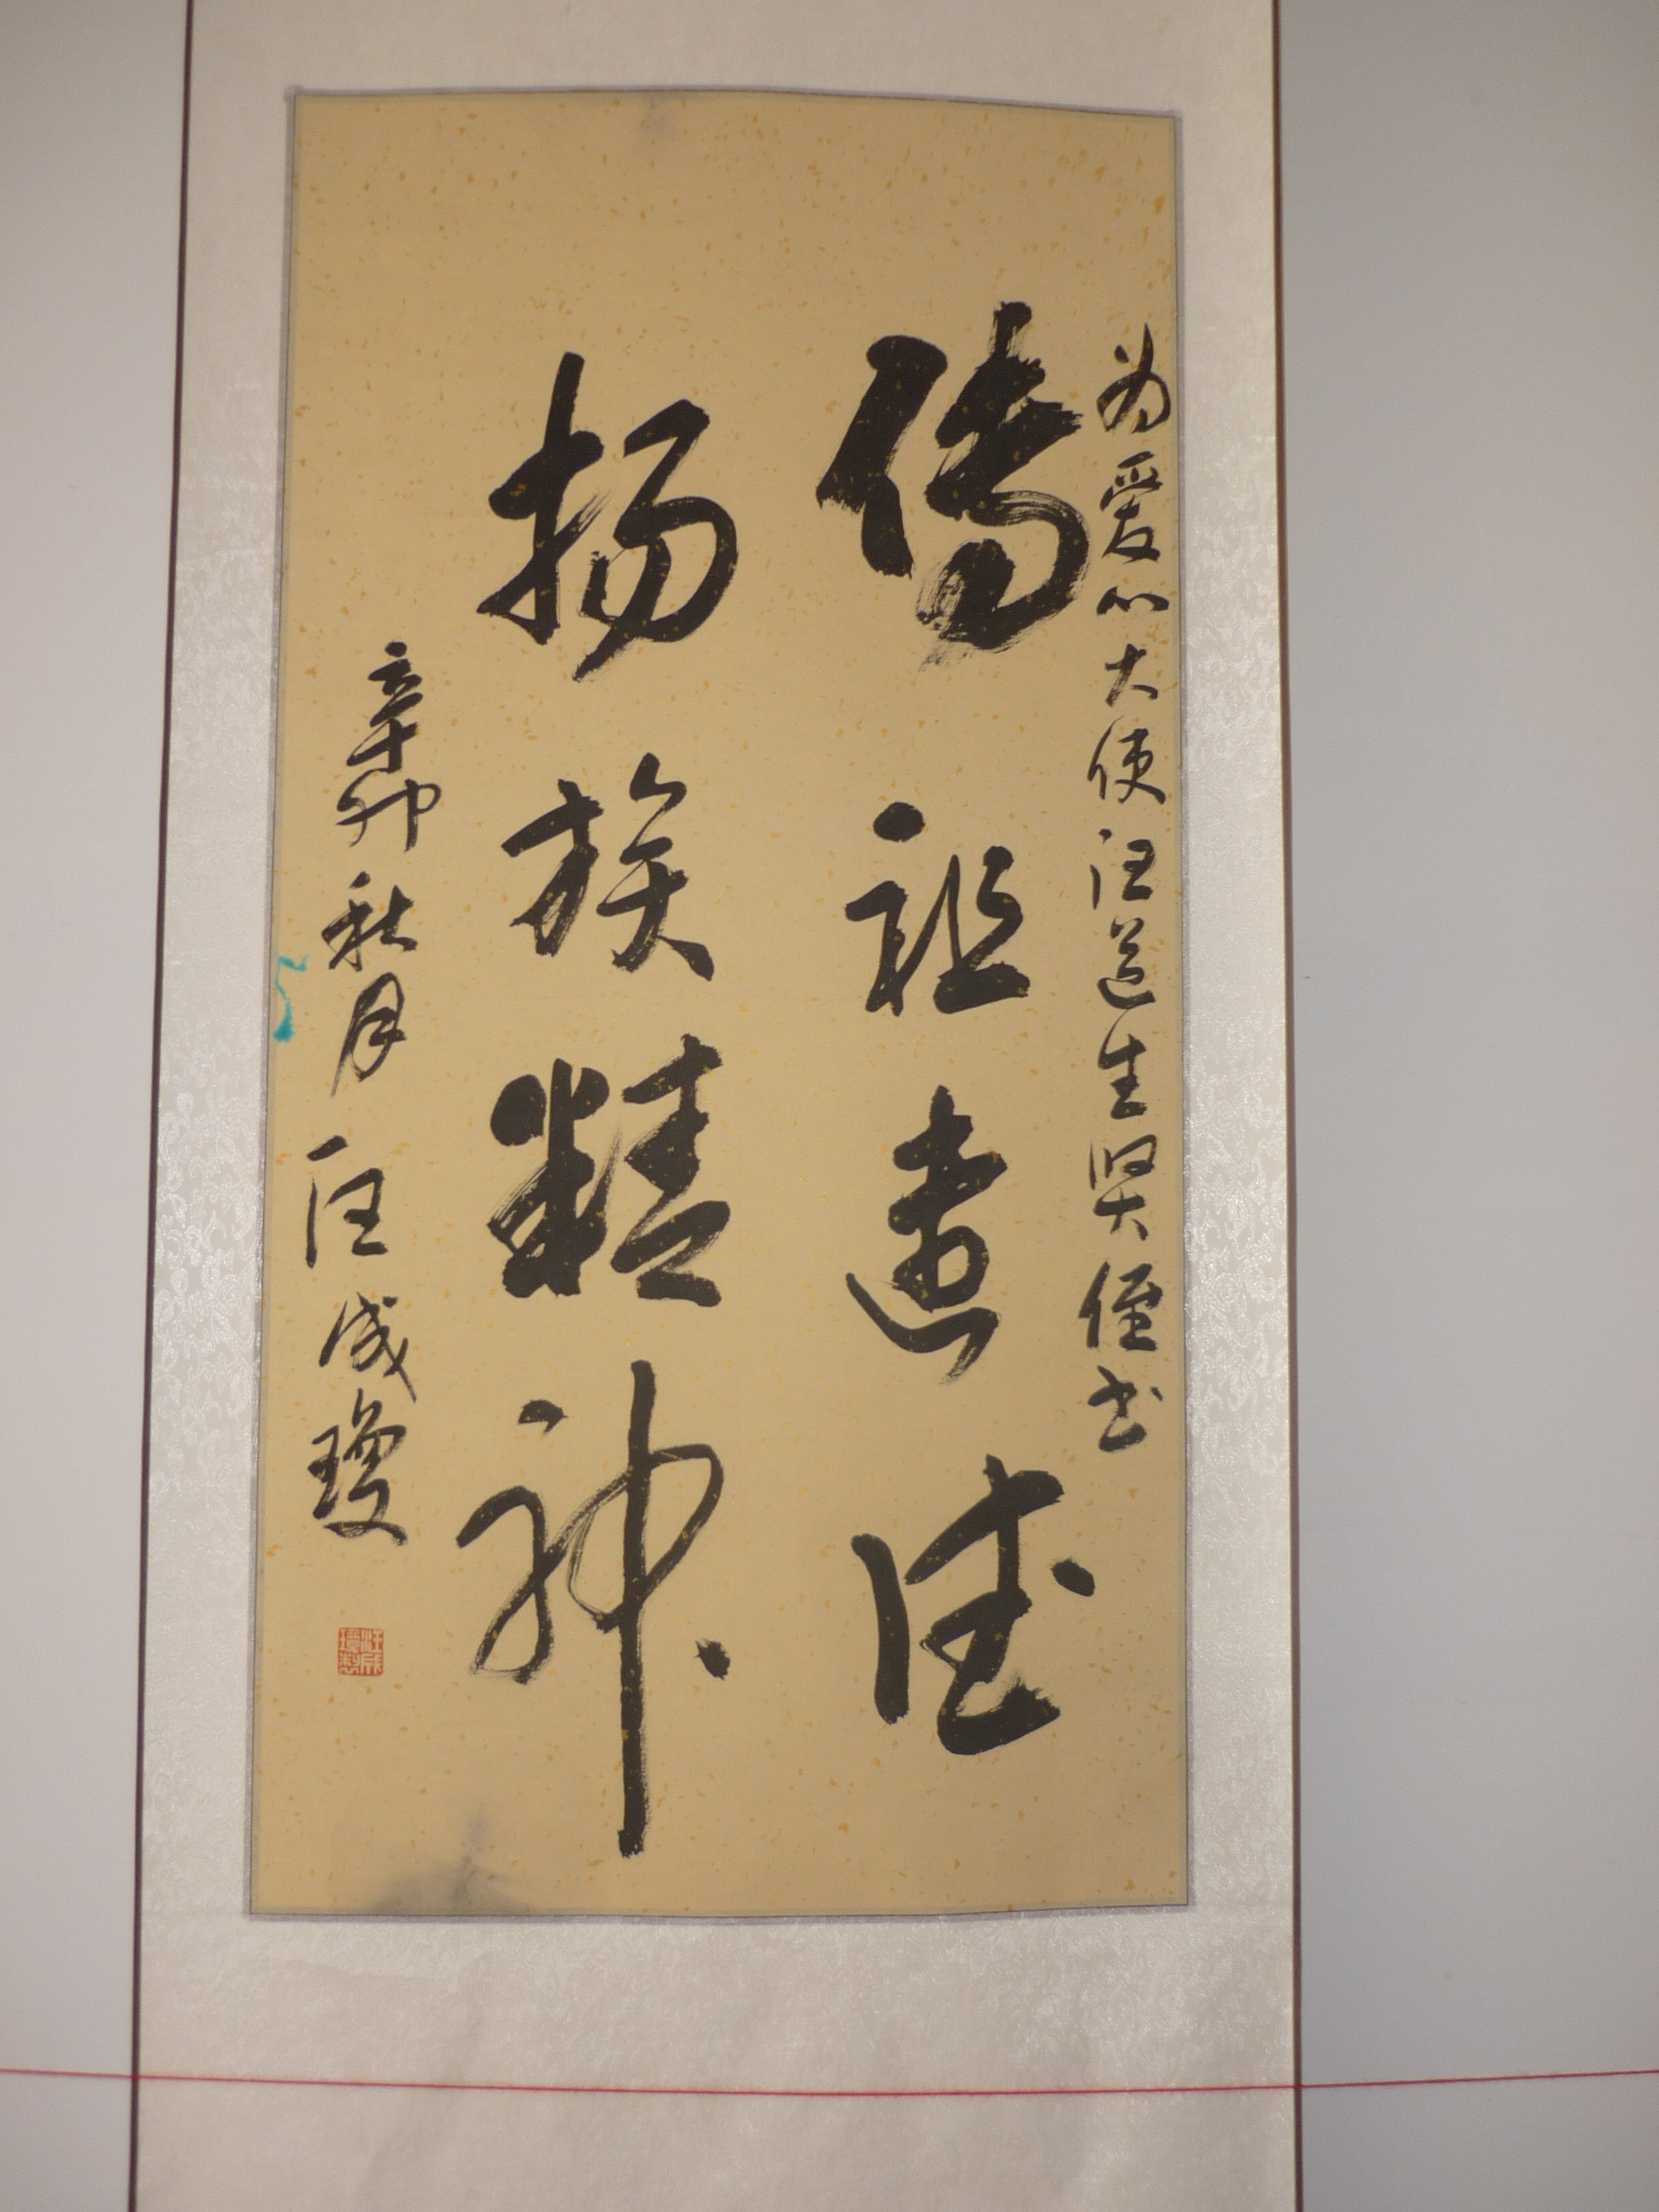 为爱心大使汪道生贤侄书
传祖遗德
扬族精神
辛卯秋月 汪成琼